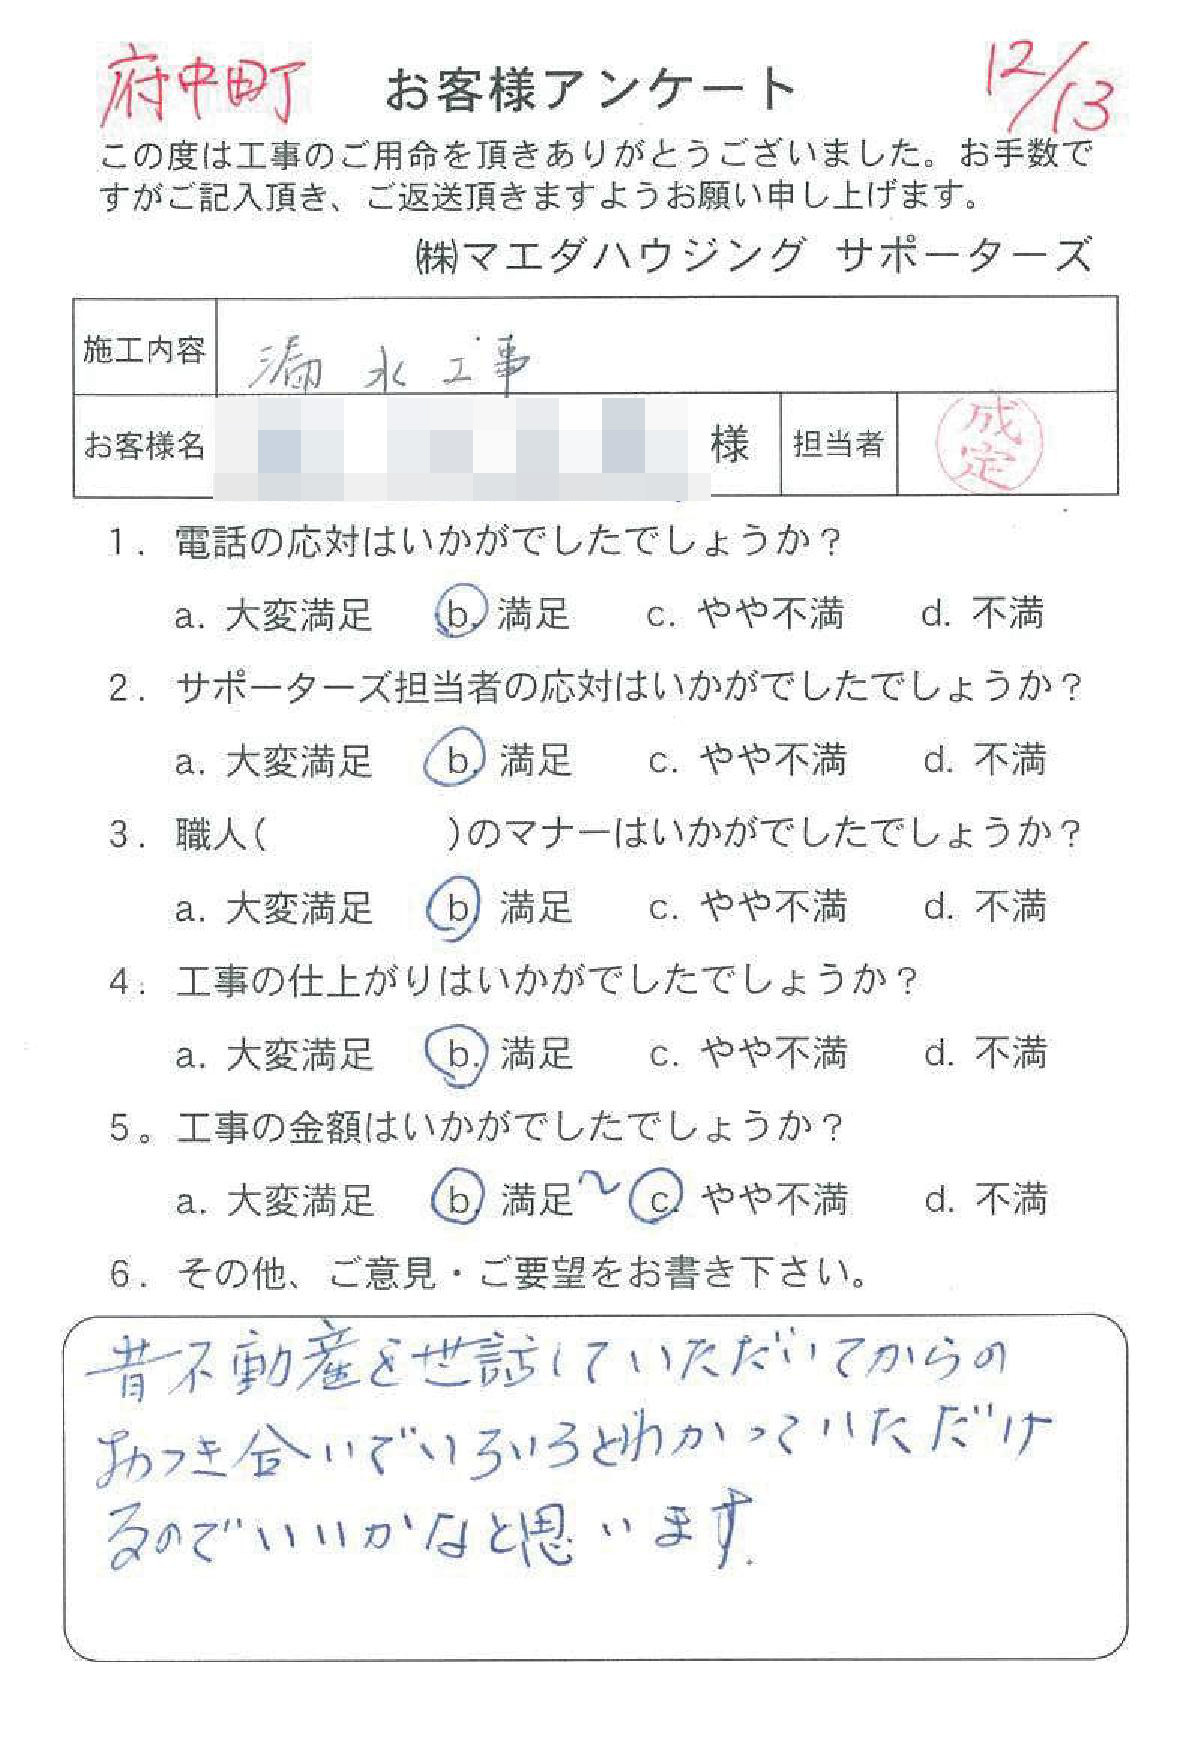 府中町 お客様アンケート 12/13
この度は工事のご用命を頂きありがとうございました。お手数で
すがご記入頂き、ご返送頂きますようお願い申し上げます。
㈱マエダハウジング サポーターズ
施工内容 漏水工事
お客様名 様 担当者 成定
1. 電話の応対はいかがでしたでしょうか?
a. 大変満足 b. 満足 c. やや不満 d. 不満
2. サポーターズ担当者の応対はいかがでしたでしょうか?
a. 大変満足 b. 満足 c. やや不満 d. 不満
3. 職人( )のマナーはいかがでしたでしょうか?
a. 大変満足 b. 満足 c. やや不満 d. 不満
4. 工事の仕上がりはいかがでしたでしょうか?
a. 大変満足 b. 満足 c. やや不満 d. 不満
5。工事の金額はいかがでしたでしょうか?
a. 大変満足 b. 満足 〜 c. やや不満 d. 不満
6. その他、ご意見・ご要望をお書き下さい。
昔不動産を世話していただいてからの
おつき合いでいろいろとわかっていただけ
るのでいいかなと思います.